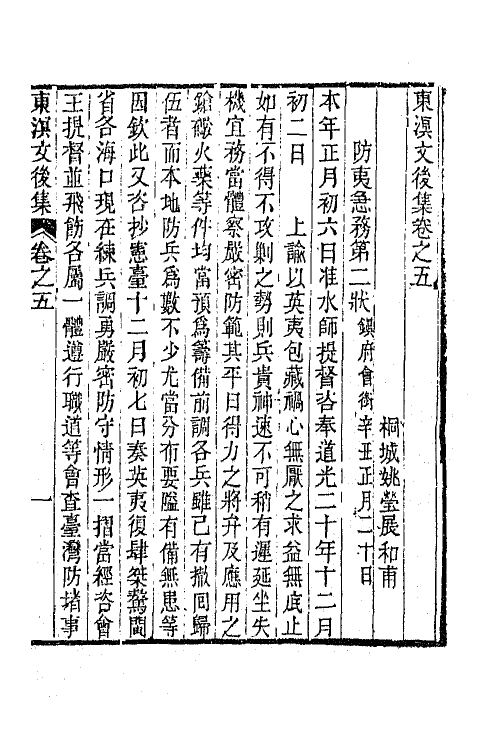 東溟文後集卷之五
桐城姚瑩展和甫
防夷急務第二狀鎮府會銜辛丑正月二十日
本年正月初六日准水師提督咨奉道光二十年十二月
初二日　上諭以英夷包藏禍心無厭之求益無底止
如有不得不攻剿之勢則兵貴神速不可稍有遲延坐失
機宜務當體察嚴密防範其平日得力之將弁及應用之
鎗礮火藥等件均當預爲籌備前調各兵雖已有撤回歸
伍者而本地防兵爲數不少尤當分布要隘有備無患等
因欽此又咨抄憲臺十二月初七日奏英夷復肆桀驁閩
省各海口現在練兵調勇嚴密防守情形一摺當經咨會
王提督並飛飭各屬一體遵行職道等會查臺灣防堵事
東溟文後集 卷之五 一